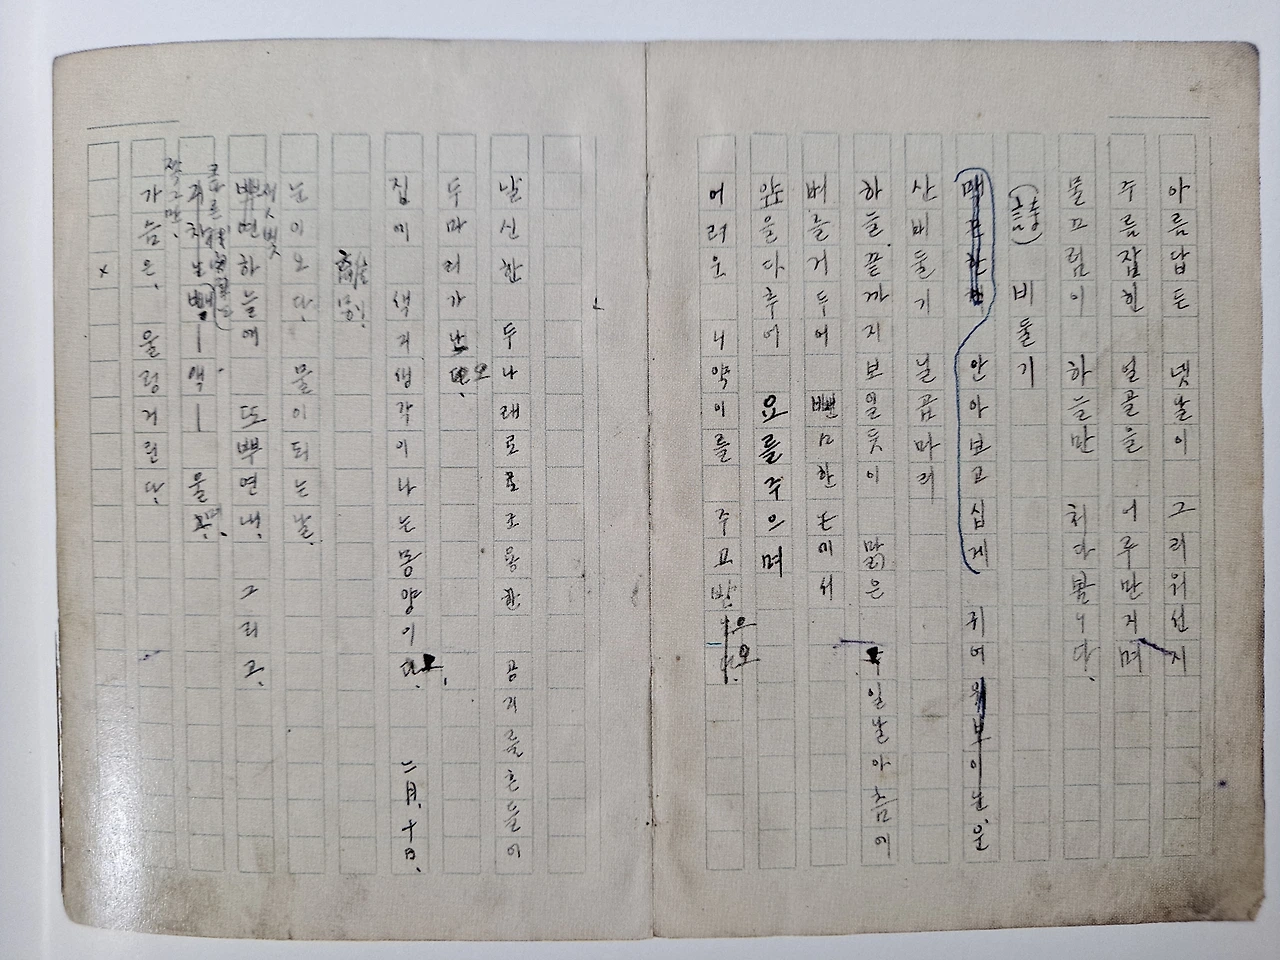 아름답든 녯날이 그리워선지
주름잡힌 얼골을 어루만지며
물끄럼이 하늘만 처다봅니다.
(詩) 비둘기
안아보고십게 귀여운
산비둘기 닐곱마리
하늘끝까지 보일듯이 맑은 주일날아츰에
벼를거두어 뺀한논에서
앞을다투어 요를주으며
어려운 니약이를 주고받으오.
날신한 두나래로 조용한 공기를흔들어
두마리가 나오.
집에 색기생각이 나는몽양이오.
二月、十日、
눈이오다、물이되는날、
잿빛
하늘에 또뿌연내、그리고、
크다른
빼—액— 울며、
쪼그만、
가슴은、 울렁거린다、
×